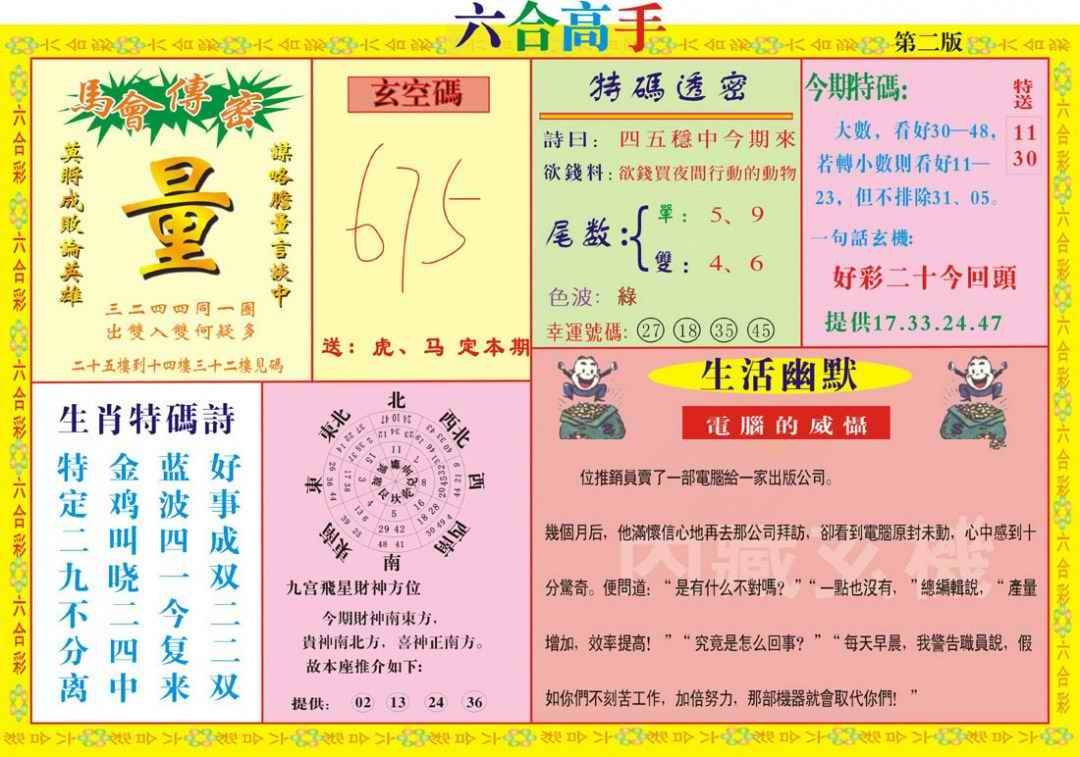 六合高手
第二版
馬會傳密
莫將成敗論英雄
量
謀略膽量言談中
三二四四同一圈
出雙入雙何疑多
二十五樓到十四樓三十二樓見碼
玄空碼
675
送：虎、马 定本期
特碼透密
詩曰：四五穩中今期來
欲錢料：欲錢買夜間行動的動物
尾数：
單：5、9
雙：4、6
色波：綠
幸運號碼：27 18 35 45
今期特碼：
特送
11
30
大數，看好30—48，
若轉小數則看好11—
23，但不排除31、05。
一句話玄機：
好彩二十今回頭
提供17.33.24.47
生肖特碼詩
好事成双二二双
蓝波四一今复来
金鸡叫晓二四中
特定二九不分离
北
西北
西
西南
南
東南
東
東北
九宫飛星財神方位
今期財神南東方，
貴神南北方，喜神正南方。
故本座推介如下：
提供：02 13 24 36
生活幽默
電腦的威懾
位推銷員賣了一部電腦給一家出版公司。
幾個月后，他滿懷信心地再去那公司拜訪，卻看到電腦原封未動，心中感到十
分驚奇。便問道：“是有什么不對嗎？”“一點也沒有，”總編輯說，“產量
增加，效率提高！”“究竟是怎么回事？”“每天早晨，我警告職員說，假
如你們不刻苦工作，加倍努力，那部機器就會取代你們！”
內藏玄機
六合彩